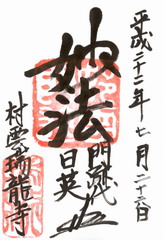 平成二十二年七月二十六日
妙法
門跡代
日英
村雲瑞龍寺